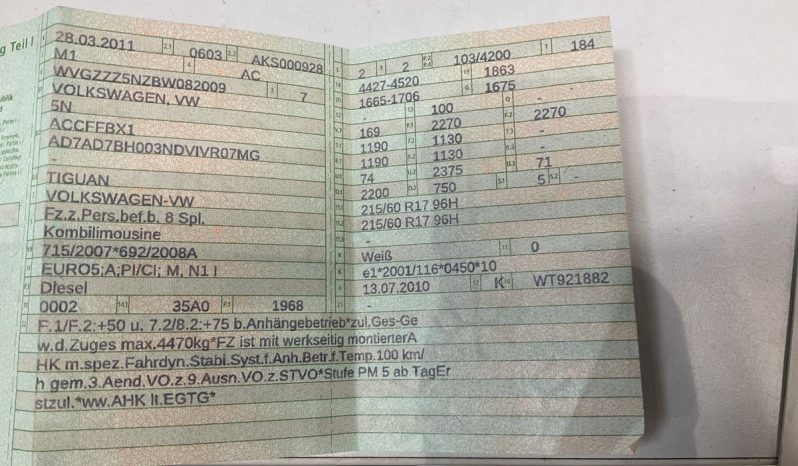 g Teil I
28.03.2011 2.1 0603 2.2 AKS000928
M1 4 AC
WVGZZZ5NZBW082009 3 7
VOLKSWAGEN, VW
5N
ACCFFBX1
AD7AD7BH003NDVIVR07MG
-
TIGUAN
VOLKSWAGEN-VW
Fz.z.Pers.bef.b. 8 Spl.
Kombilimousine
715/2007*692/2008A
EURO5;A;PI/CI; M, N1 I
DIesel
0002 14.1 35A0 P.1 1968
F.1/F.2:+50 u. 7.2/8.2:+75 b.Anhängebetrieb*zul.Ges-Ge
w.d.Zuges max.4470kg*FZ ist mit werkseitig montierterA
HK m.spez.Fahrdyn.Stabi.Syst.f.Anh.Betr.f.Temp.100 km/
h gem.3.Aend.VO.z.9.Ausn.VO.z.STVO*Stufe PM 5 ab TagEr
stzul.*ww.AHK lt.EGTG*
2 9 2 P.2 P.4 103/4200 T 184
4427-4520 19 1863
1665-1706 G 1675
- 13 100 Q -
169 F.1 2270 F.2 2270
1190 7.2 1130 7.3 -
1190 8.2 1130 8.3 -
74 U.2 2375 U.3 71
2200 O.2 750 S.1 5 S.2 -
215/60 R17 96H
215/60 R17 96H
-
Weiß 11 0
e1*2001/116*0450*10
13.07.2010 17 K 16 WT921882
-